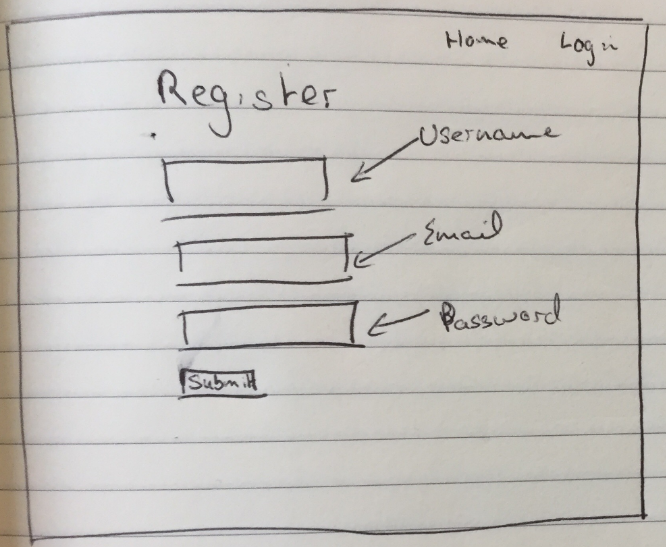 Home Login
Register
Username
Email
Password
Submit